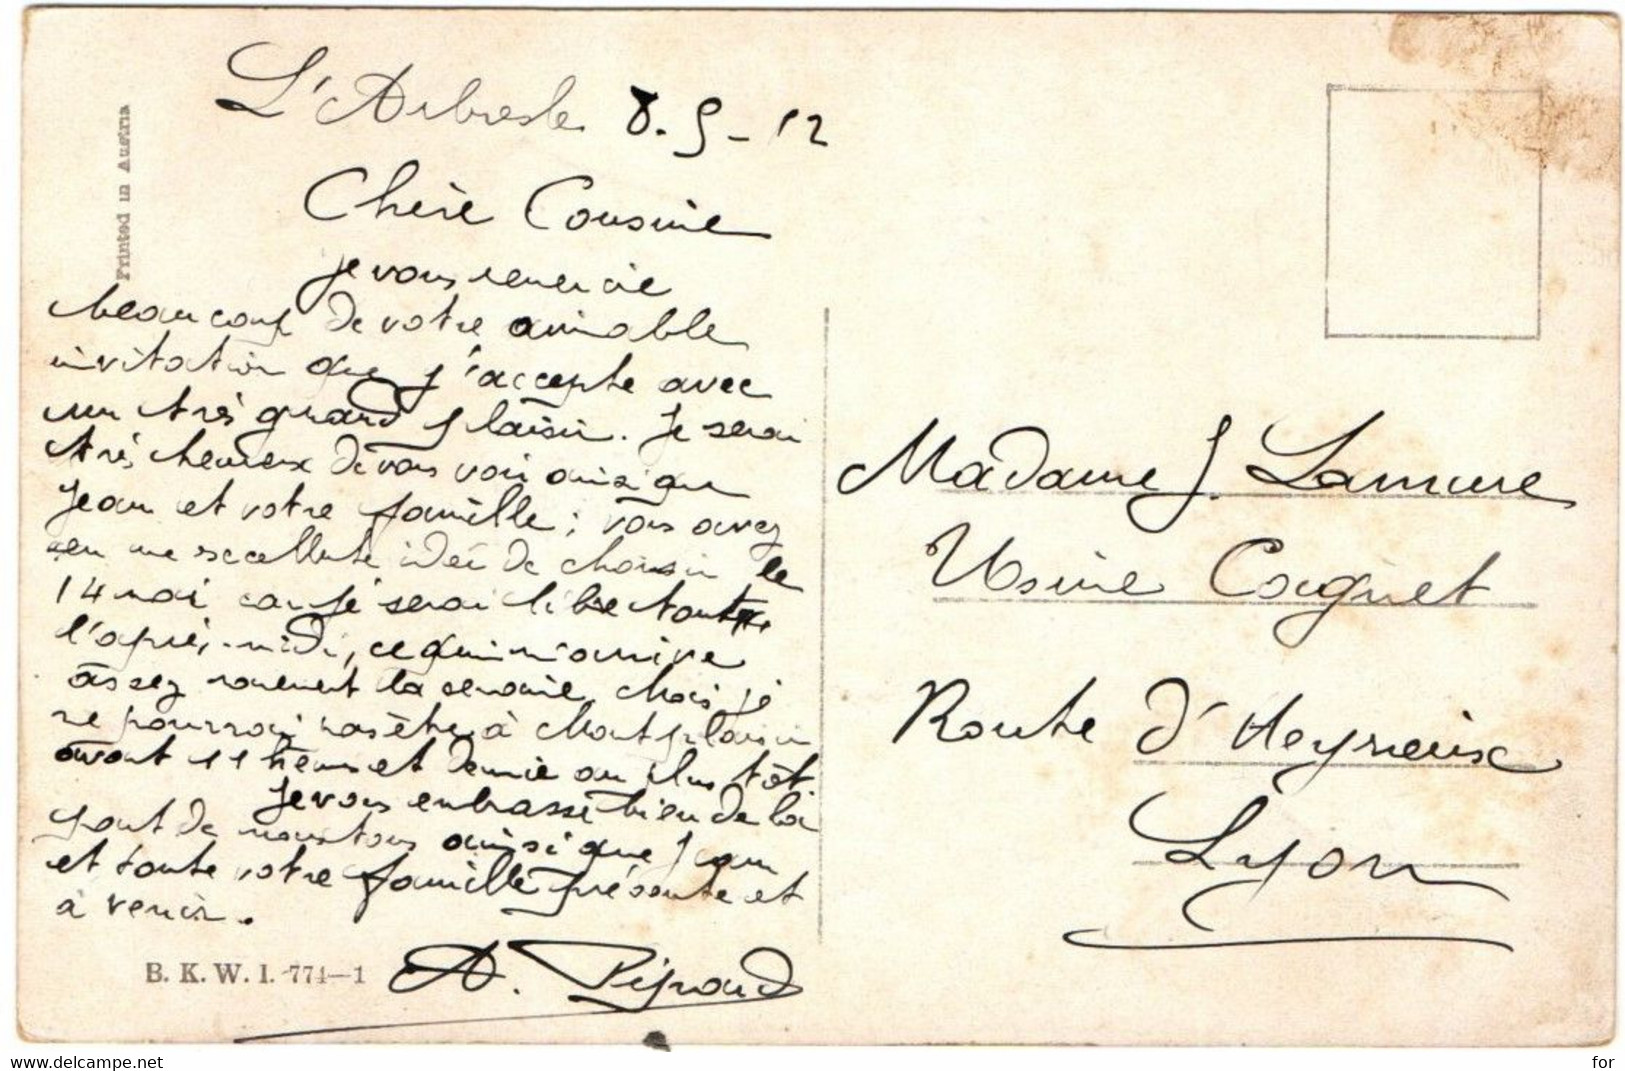 L'Arbresle 8-5-12
Chère Cousine
je vous remercie
beaucoup de votre aimable
invitation que j'accepte avec
un très grand plaisir. Je serai
très heureux de vous voir ainsi que
Jean et votre famille ; vous avez
eu une excellente idée de choisir le
14 mai car je serai libre toute
l'après-midi, ce qui m'arrive
assez rarement la semaine. Mais je
ne pourrai pas être à Montplaisir
avant 11 heures et demie au plus tôt.
Je vous embrasse bien de la
part de nous tous ainsi que Jean
et toute votre famille présente et
à venir.
A.
Printed in Austria
B. K. W. I. 774-1
Madame J. Lamure
Usine Coignet
Route d'Heyrieux
Lyon
www.delcampe.net
for